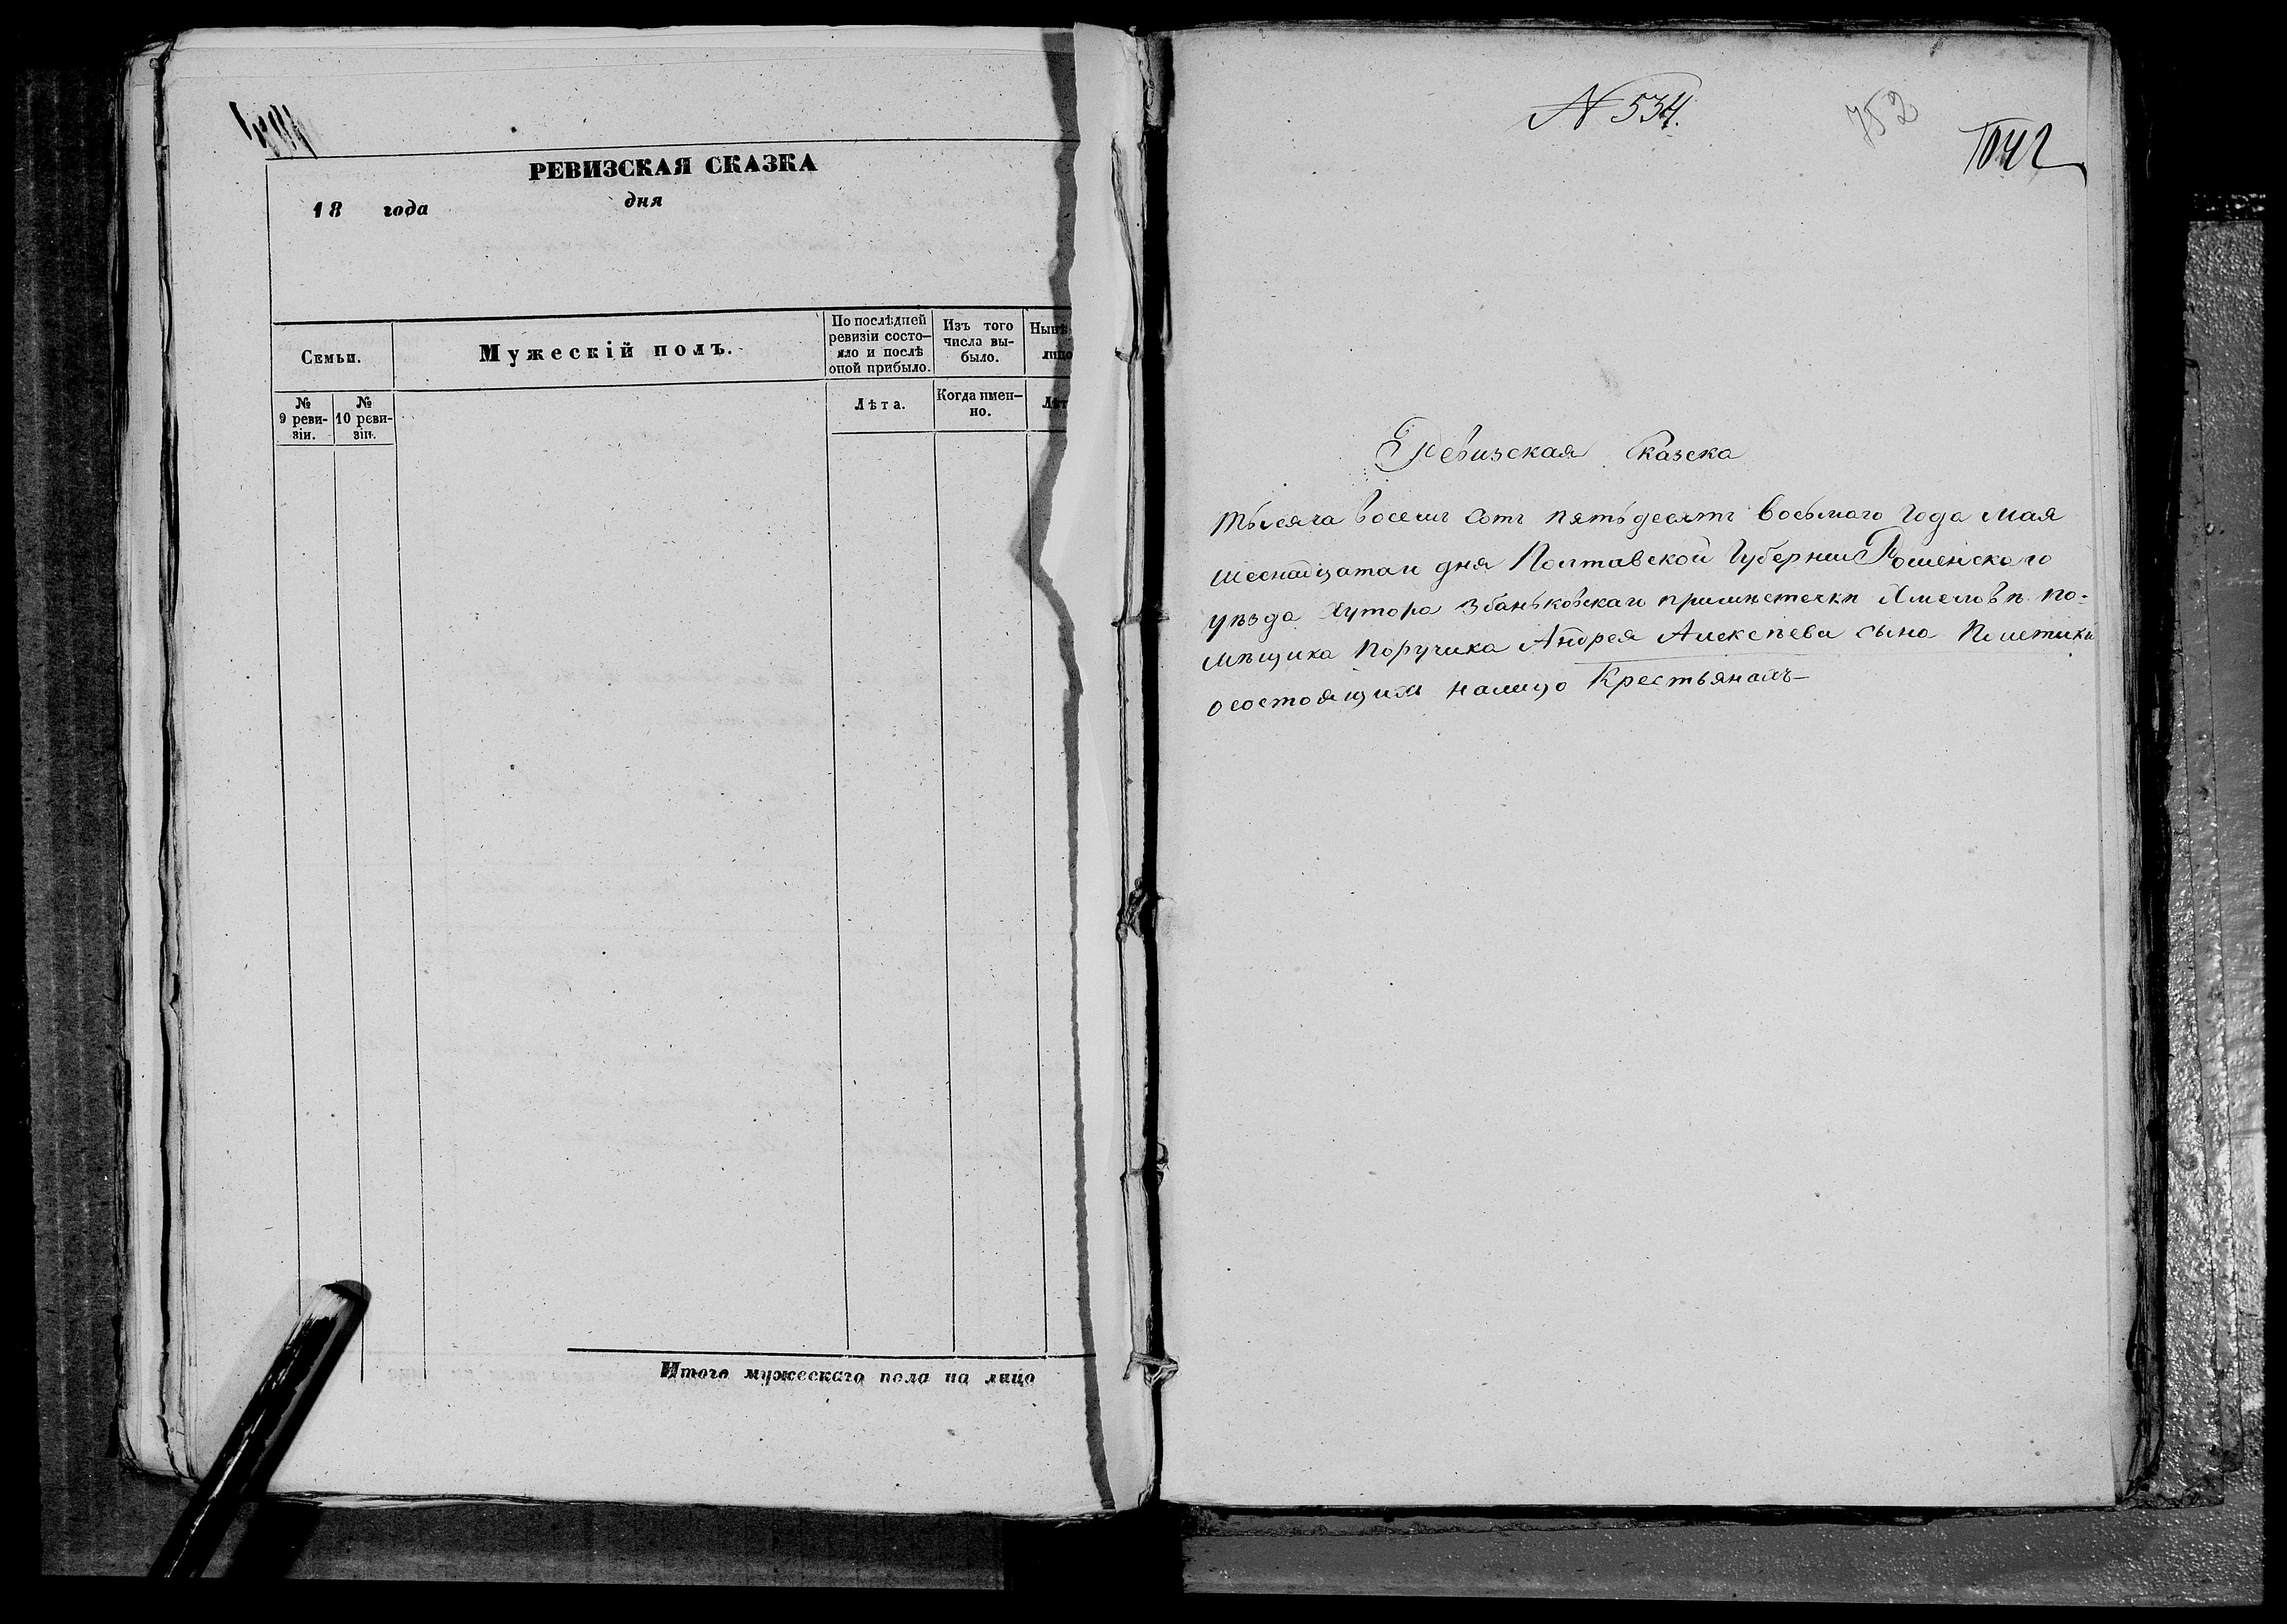 РЕВИЗСКАЯ СКАЗКА
18 года дня
Семьи.
Мужескій полъ.
По послѣдней ревизіи состо-
яло и послѣ оной прибыло.
Изъ того числа вы-
было.
Нынѣ
лицо
№ 9 реви-
зіи.
№ 10 реви-
зіи.
Лѣта.
Когда имен-
но.
Лѣт
Итого мужескаго пола на лицо
N 534.
752
1042
Ревизская Сказска
тысяча восемь сотъ пятьдесятъ восьмаго Года Мая
шеснадцатаго дня Полтавской Губерніи Роменскаго
уѣзда Хутора Збаньковскаго примѣстечкѣ Хмеловѣ по-
мѣщика Поручика Андрея Алексѣева сына
осостоящихъ налицо Крестьянахъ